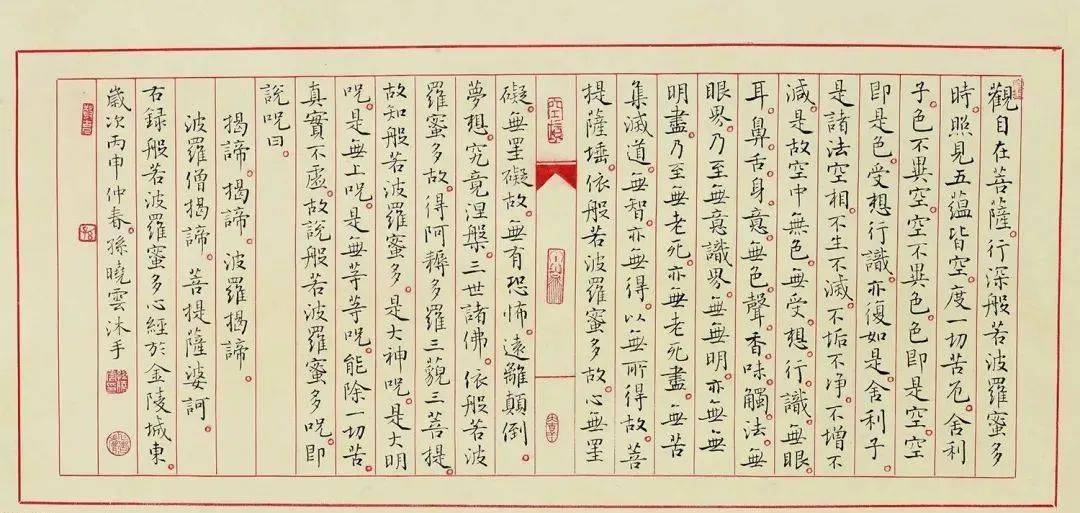 觀自在菩薩。行深般若波羅蜜多
時。照見五蘊皆空。度一切苦厄。舍利
子。色不異空。空不異色。色即是空。空
即是色。受想行識。亦復如是。舍利子。
是諸法空相。不生不滅。不垢不净。不增不
減。是故空中無色。無受想行識。無眼
耳鼻舌身意。無色聲香味觸法。無
眼界。乃至無意識界。無無明。亦無無
明盡。乃至無老死。亦無老死盡。無苦
集滅道。無智亦無得。以無所得故。菩
提薩埵。依般若波羅蜜多故。心無罣
礙。無罣礙故。無有恐怖。遠離顛倒
夢想。究竟涅槃。三世諸佛。依般若波
羅蜜多故。得阿耨多羅三藐三菩提。
故知般若波羅蜜多。是大神呪。是大明
呪。是無上呪。是無等等呪。能除一切苦。
真實不虛。故說般若波羅蜜多呪。即
說呪曰。
揭諦。揭諦。波羅揭諦。
波羅僧揭諦。菩提薩婆訶。
右録般若波羅蜜多心經於金陵城東。
歲次丙申仲春。孫曉雲沐手